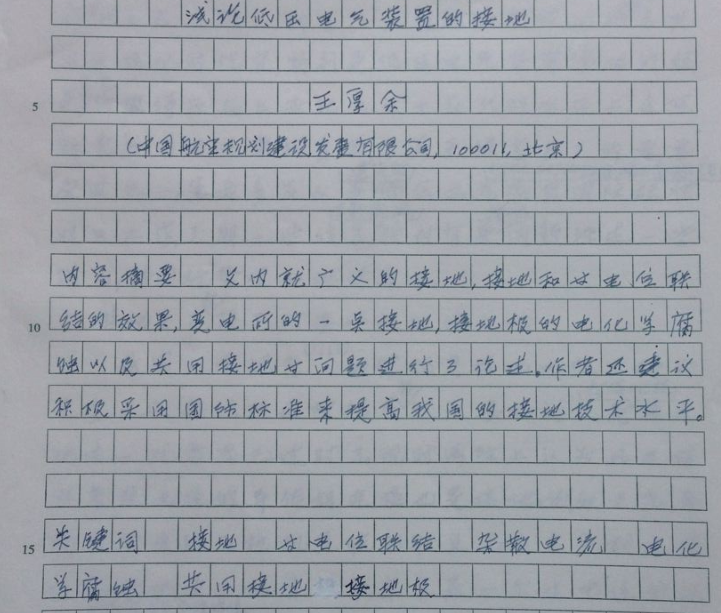 浅论低压电气装置的接地
5 王厚余
(中国航空规划建设发展有限公司, 100011, 北京)
内容摘要 文内就广义的接地,接地和廿电位联
10 结的效果,变电所的一点接地,接地极的电化学腐
蚀以及共用接地廿问题进行了论述。作者还建议
积极采用国际标准来提高我国的接地技术水平。
15 关键词 接地 廿电位联结 杂散电流 电化
学腐蚀 共用接地 接地极